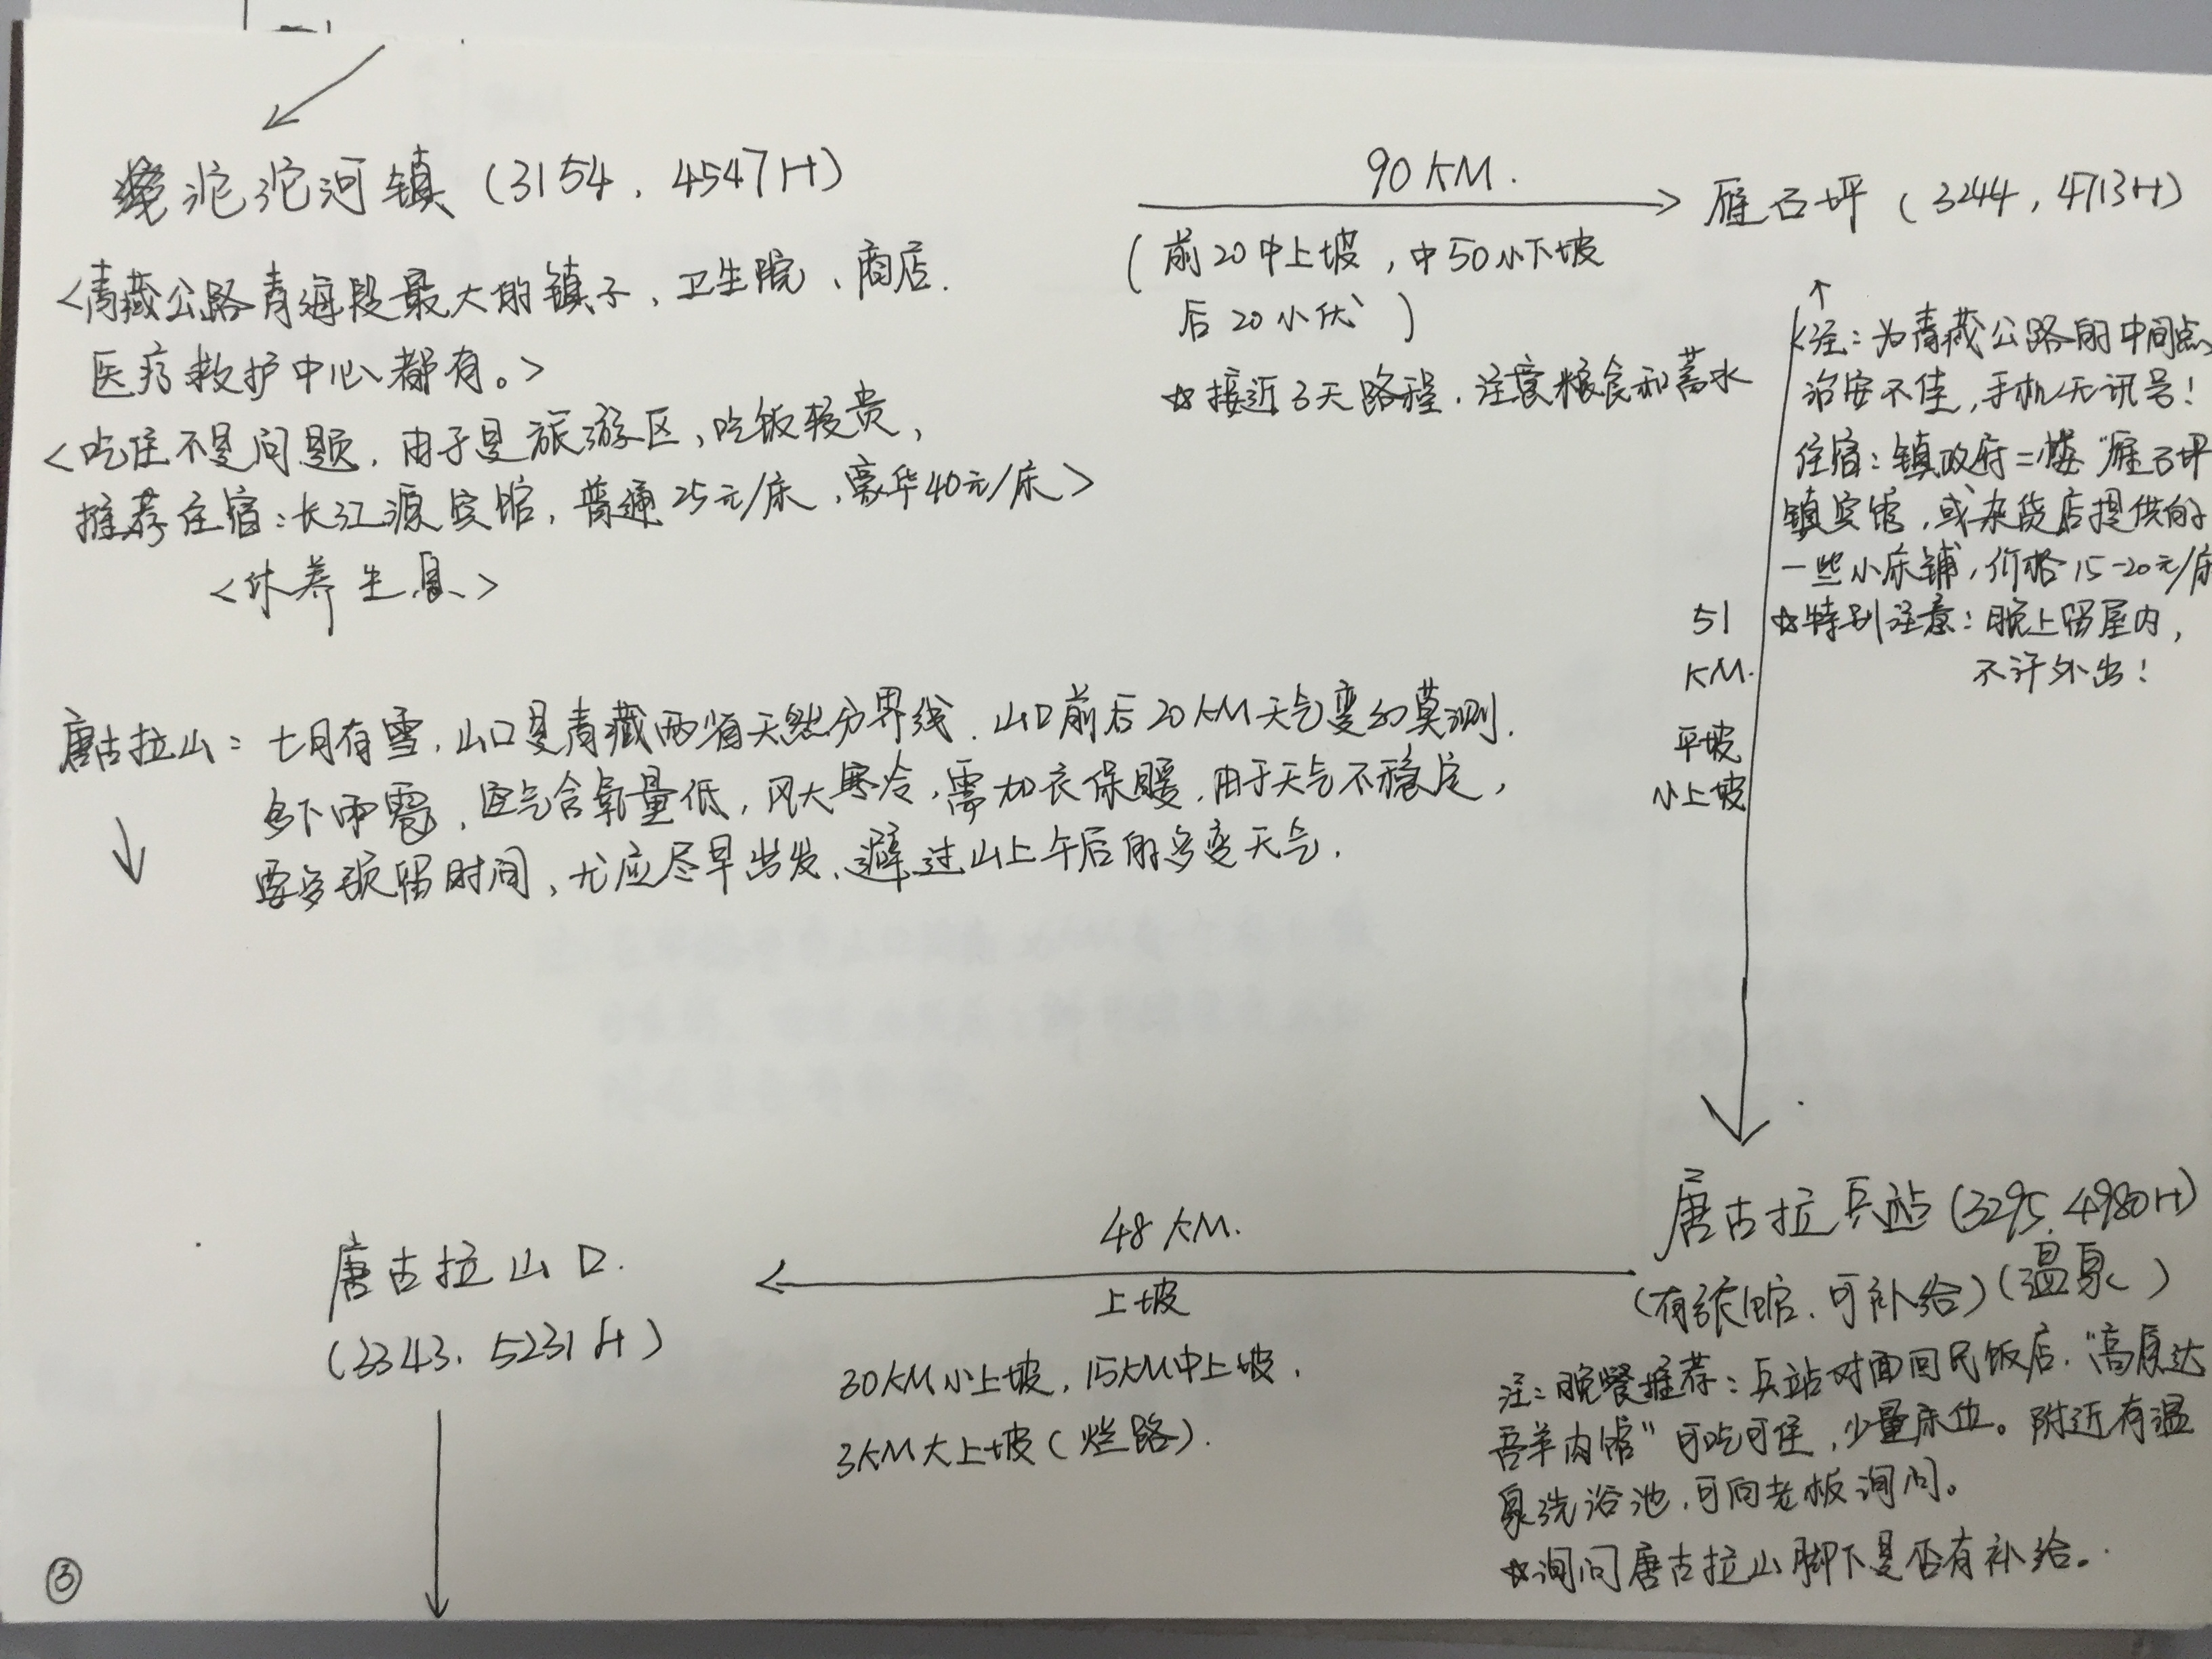 沱沱河镇 (3154, 4547H)
<青藏公路青海段最大的镇子、卫生院、商店.
医疗救护中心都有。>
<吃住不是问题, 由于是旅游区, 吃饭较贵,
推荐住宿: 长江源宾馆, 普通25元/床, 豪华40元/床>
<休养生息>
90KM.
(前20中上坡, 中50小下坡
后20小伏)
☆接近3天路程, 注意粮食和蓄水
雁石坪 (3244, 4713H)
<注: 为青藏公路的中间点
治安不佳, 手机无讯号!
住宿: 镇政府二楼"雁石坪
镇宾馆, 或杂货店提供的
一些小床铺, 价格15-20元/床
☆特别注意: 晚上留屋内,
不许外出!
51
KM.
平坡
小上坡
唐古拉山: 七月有雪, 山口是青藏两省天然分界线. 山口前后20KM天气变幻莫测.
多下雨雹, 空气含氧量低, 风大寒冷, 需加衣保暖, 由于天气不稳定,
要多预留时间, 尤应尽早出发, 避过山上午后的多变天气.
唐古拉兵站 (3295, 4980H)
(有旅馆. 可补给) (温泉)
注: 晚餐推荐: 兵站对面回民饭店, "高原达
吾羊肉馆" 可吃可住, 少量床位。附近有温
泉洗浴池, 可向老板询问。
☆询问唐古拉山脚下是否有补给。
48KM.
上坡
30KM小上坡, 15KM中上坡,
3KM大上坡(烂路).
唐古拉山口.
(3343, 5231H)
③